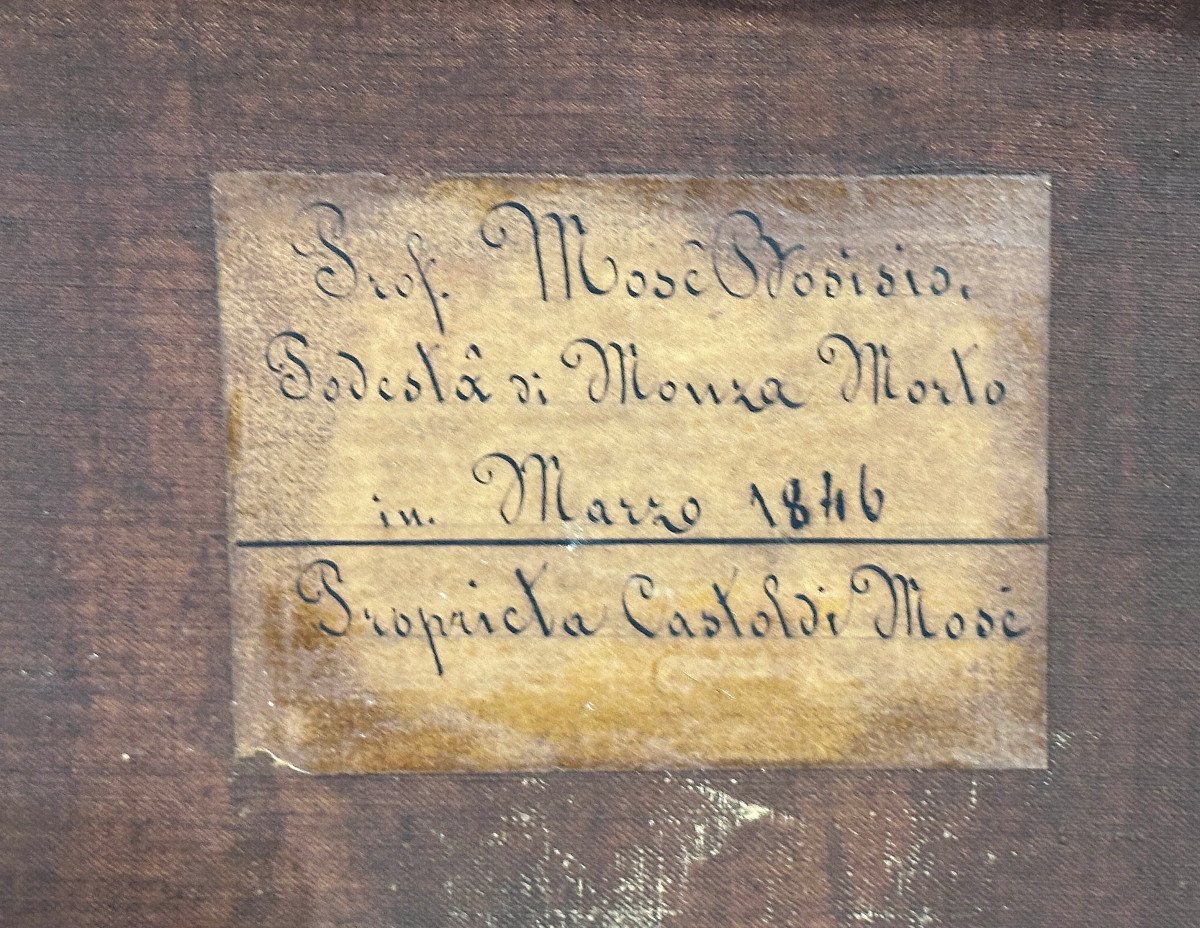 Prof. Mosê Bosisio.
Podestâ di Monza Morto
in. Marzo 1846
Proprieta Castoldi Mosè